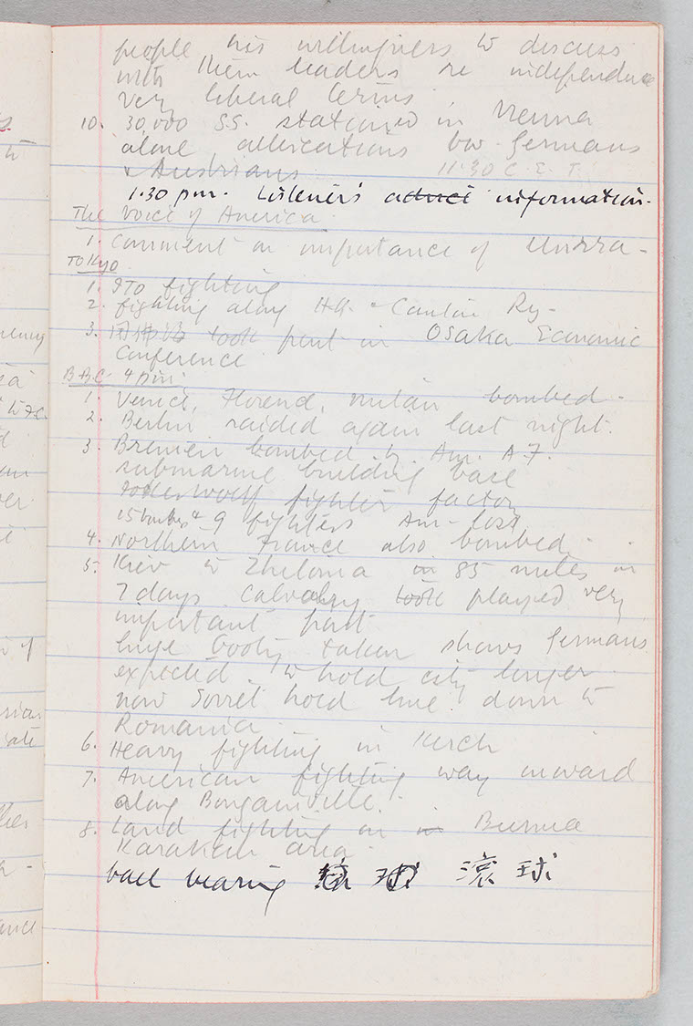 people his willingness to discuss
with them leaders re independence
very liberal terms.
10. 30,000 S.S. stationed in Vienna
alone altercations bw. Germans
& Austrians 11:30 C.E.T.
1.30 pm. Listener's information.
The Voice of America.
1. Comment on importance of Unrra -
TOKYO
1. fighting
2. fighting along HK - Canton Ry -
3. 周佛海 took part in OSAKA Economic
Conference
BBC. 4 pm.
1. Venice, Florence, Milan bombed.
2. Berlin raided again last night.
3. Bremen bombed by Am. A.F.
submarine building base
wolf fighter factory
15 bombers & 9 fighters Am - lost
4. Northern France also bombed.
5. Kiev to Zhitomia in 85 miles in
7 days calvalry took played very
important part
huge booty taken shows Germans
expected to hold city longer
now Soviet hold line down to
Romania.
6. Heavy fighting in Kerch
7. American fighting way inward
along Bougainville.
8. Land fighting on in Burma
area.
ball bearing 滚球